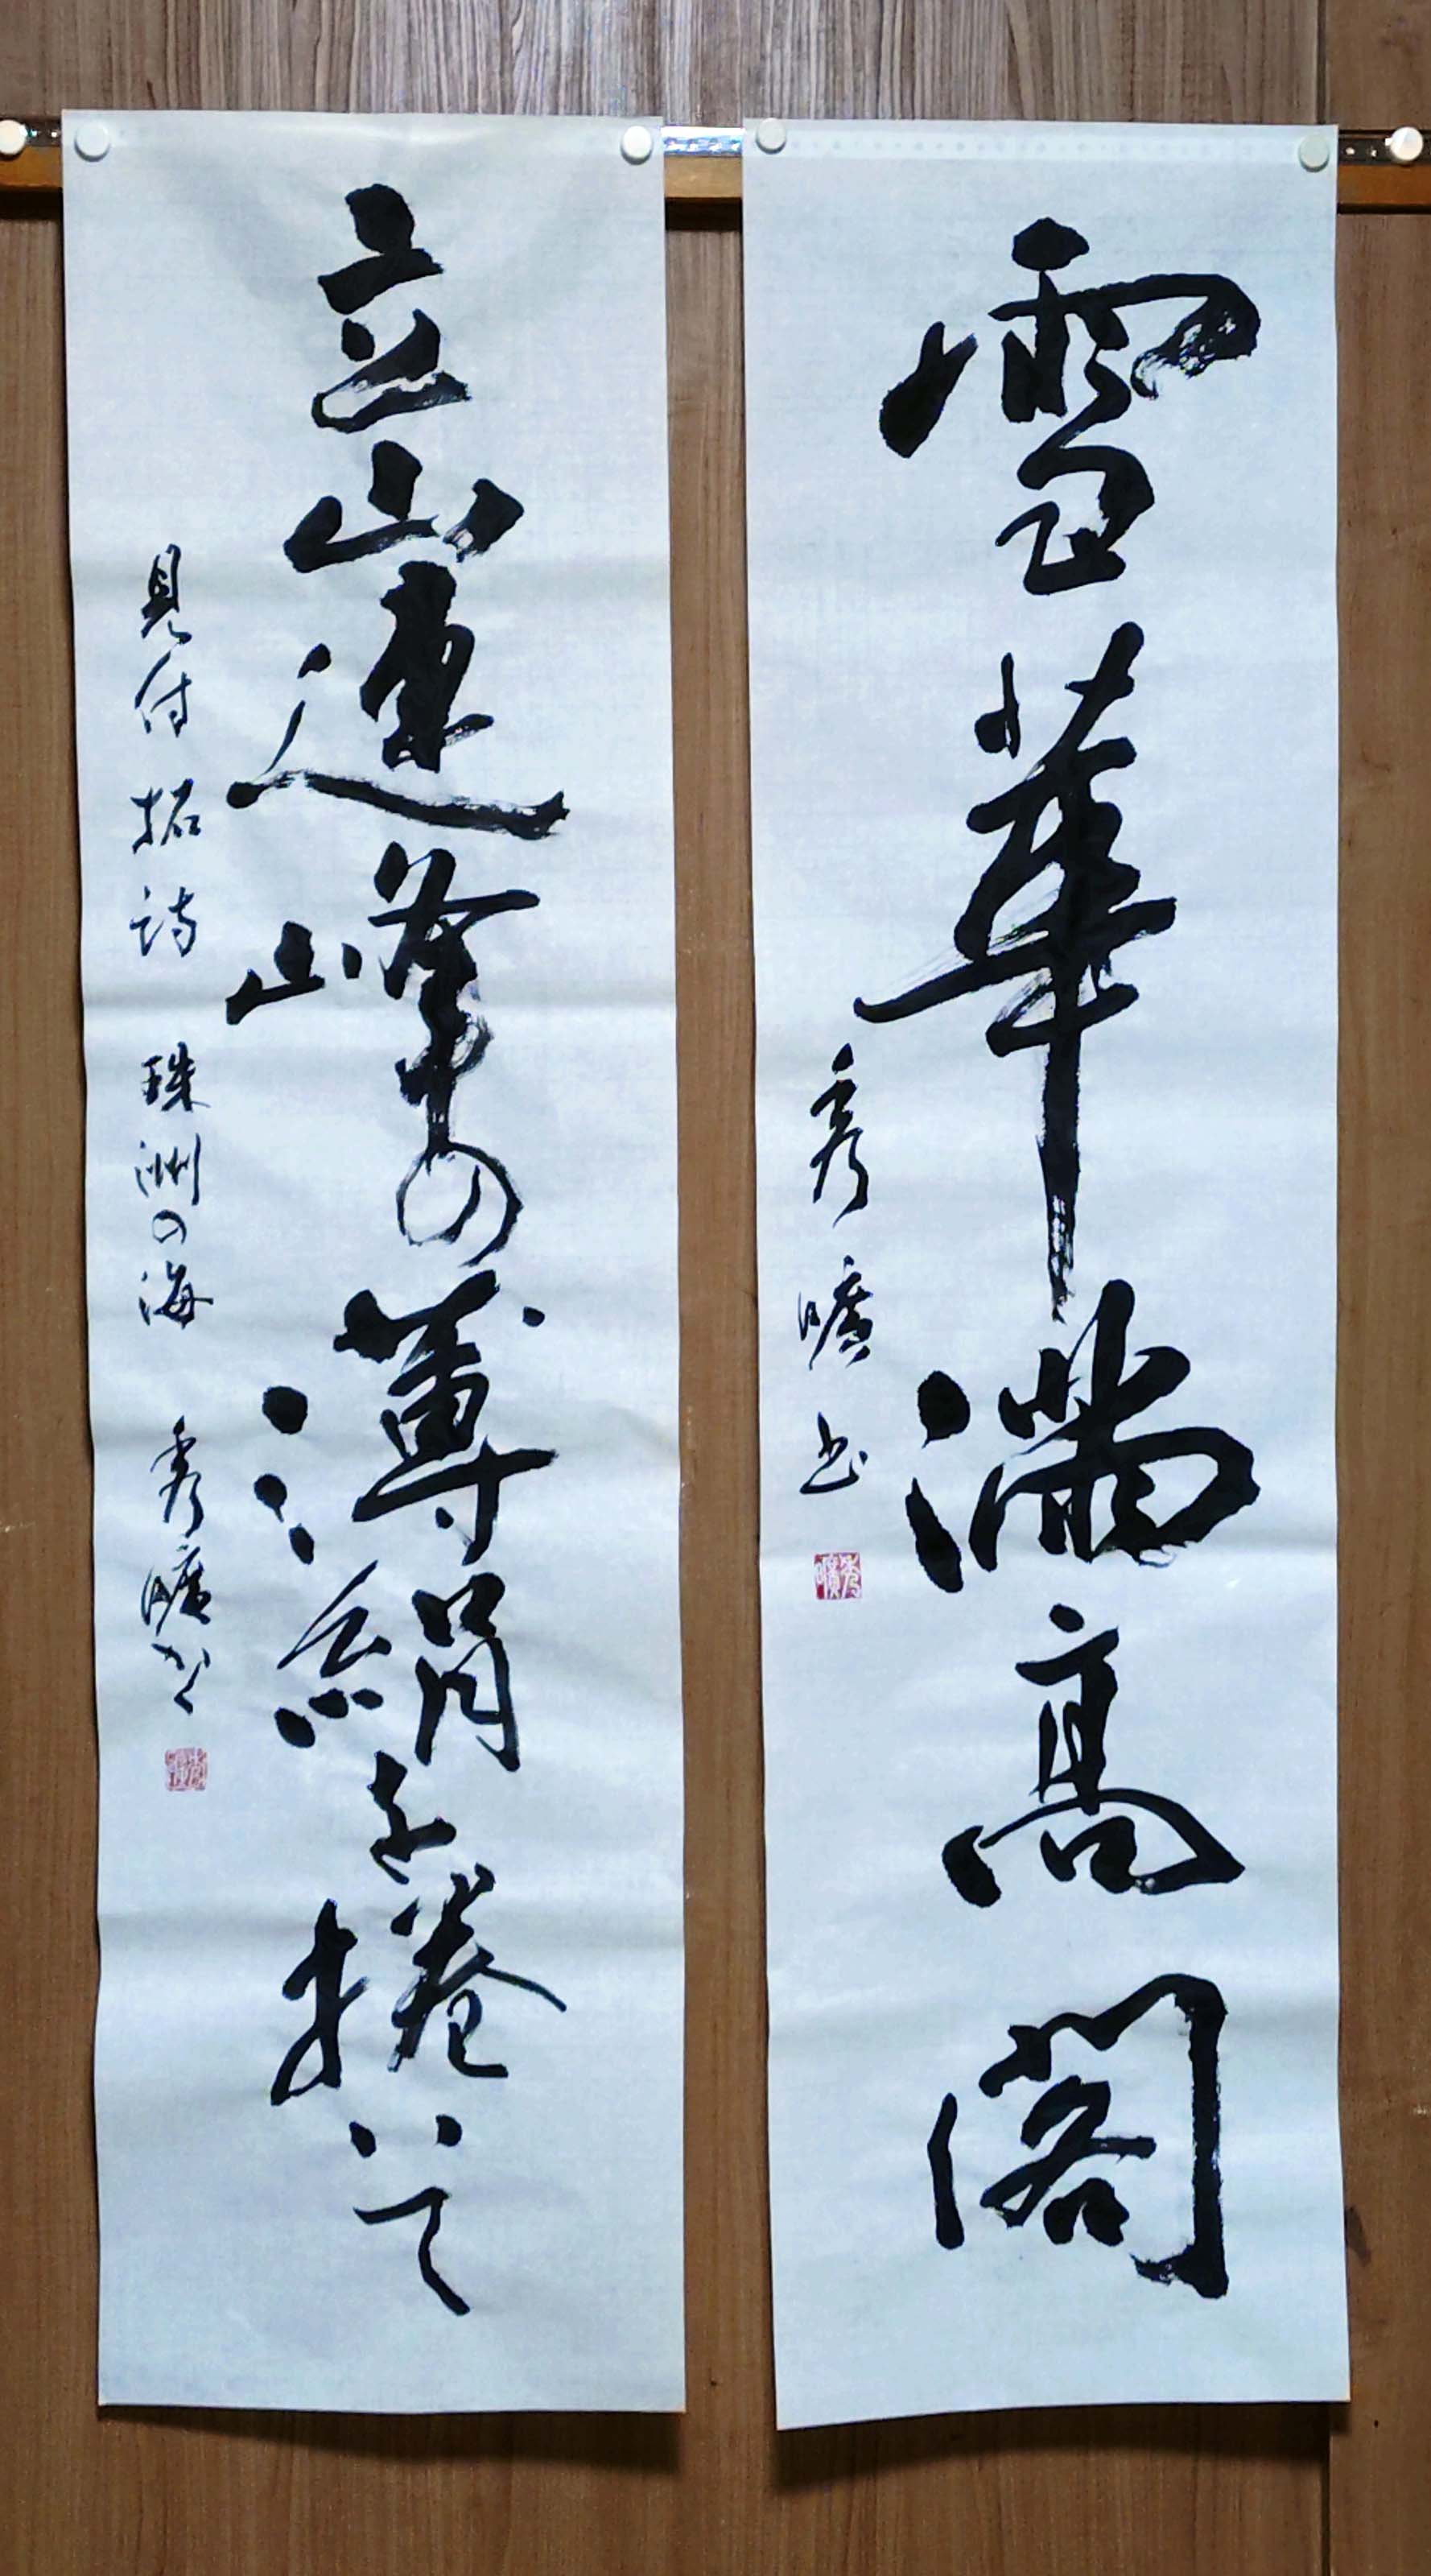 雪華満高閣
秀曠書
立山連峰の薄絹を捲いて
見付拓詩 珠洲の海 秀曠かく
秀曠